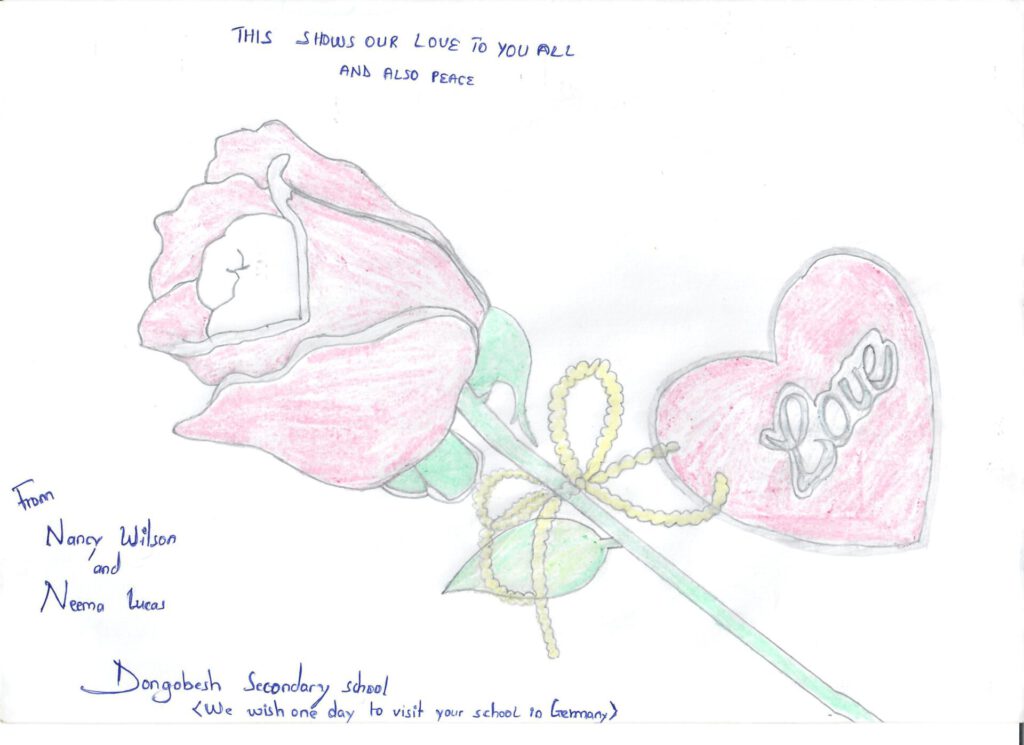 THIS SHOWS OUR LOVE TO YOU ALL
AND ALSO PEACE
Love
From
Nancy Wilson
and
Neema Lucas
Dongobesh Secondary school
<We wish one day to visit your school in Germany>